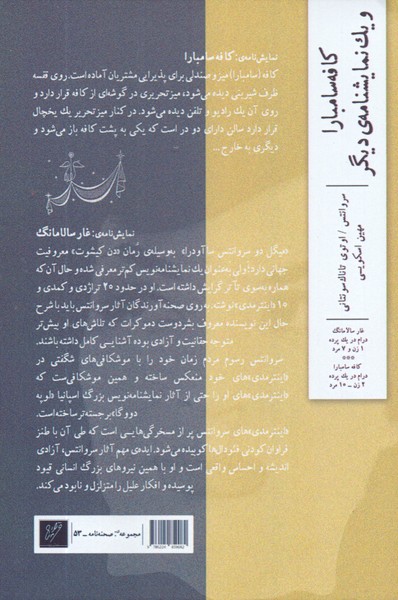 کافه سامبارا
و یک نمایشنامه‌ی دیگر
سروانتس / اوتوی تاتاک سونتانی
مهین اسکویی
غار سالامانگ
درام در یک پرده
۱ زن و ۷ مرد
***
کافه سامبارا
درام در یک پرده
۲ زن ــ ۱۰ مرد
نمایش‌نامه‌ی: کافه سامبارا
کافه (سامبارا) میز و صندلی برای پذیرایی مشتریان آماده است. روی قفسه
ظرف شیرینی دیده می‌شود، میز تحریری در گوشه‌ای از کافه قرار دارد و
روی آن یک رادیو و تلفن دیده می‌شود. در کنار میز تحریر یک یخچال
قرار دارد سالن دارای دو در است که یکی به پشت کافه باز می‌شود و
دیگری به خارج ...
نمایش‌نامه‌ی: غار سالامانگ
«میگل دو سروانتس ساآودرا» به‌وسیله‌ی رُمان «دن کیشوت» معروفیت
جهانی دارد؛ ولی به‌عنوان یک نمایشنامه‌نویس کم‌تر معرفی شده و حال آن که
همواره به‌سوی تآتر گرایش داشته است. او در حدود ۲۰ تراژدی و کمدی و
۱۵ «اینترمدی» نوشته. به روی صحنه‌آورندگان آثار سروانتس باید با شرح
حال این نویسنده معروف بشردوست دموکرات که تلاش‌های او پیش‌تر
متوجه حقانیت و آزادی بوده آشنایی کامل داشته باشند.
سروانتس رسوم مردم زمان خود را با موشکافی‌های شگفتی در
«اینترمدی»‌های خود مُنعکس ساخته و همین موشکافی‌ست که
«اینترمدی»‌های او را حتی از آثار نمایشنامه‌نویس بزرگ اسپانیا «لوپه
دوگا» برجسته‌تر ساخته است.
«اینترمدی»‌های سروانتس پر از مسخرگی‌هایی است که طی آن با طنز
فراوان کودنی فئودال‌ها کوبیده می‌شود. ایده‌ی مهم آثار سروانتس، آزادی
اندیشه و احساس واقعی است و او با همین نیروهای بزرگ انسانی قیود
پوسیده و افکار علیل را متزلزل و نابود می‌کند.
مجموعه صحنه‌نامه ــ ۵۳